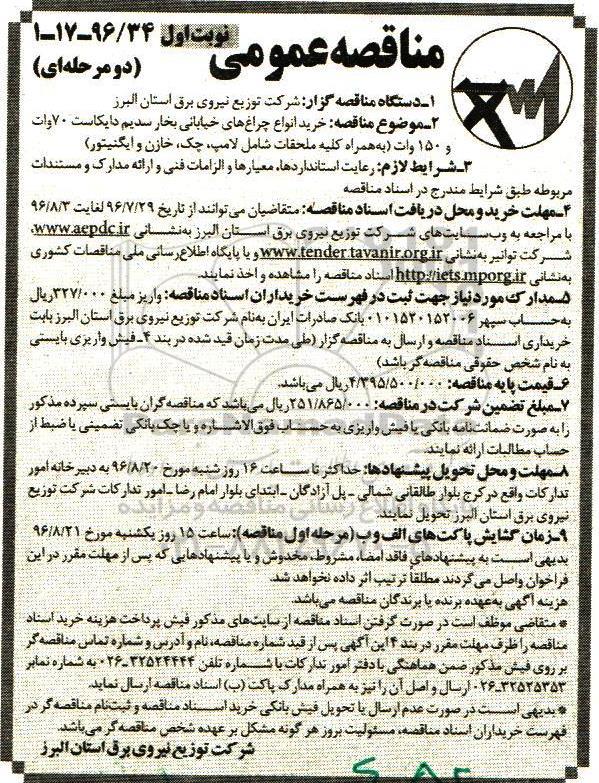 مناقصه عمومی
نوبت اول ۹۶/۳۴-۱۷-۱
(دو مرحله‌ای)
۱-دستگاه مناقصه گزار: شرکت توزیع نیروی برق استان البرز
۲-موضوع مناقصه: خرید انواع چراغ‌های خیابانی بخار سدیم دایکاست ۷۰وات
و ۱۵۰ وات (به‌همراه کلیه ملحقات شامل لامپ، چک، خازن و ایگنیتور)
۳-شرایط لازم: رعایت استانداردها، معیارها و الزامات فنی و ارائه مدارک و مستندات
مربوطه طبق شرایط مندرج در اسناد مناقصه
۴-مهلت خرید و محل دریافت اسناد مناقصه: متقاضیان می‌توانند از تاریخ ۹۶/۷/۲۹ لغایت ۹۶/۸/۳
با مراجعه به وب‌سایت‌های شرکت توزیع نیروی برق استان البرز به‌نشانی www.aepdc.ir،
شرکت توانیر به‌نشانی www.tender.tavanir.org.ir و یا پایگاه اطلاع‌رسانی ملی مناقصات کشوری
به‌نشانی http://iets.mporg.ir اسناد مناقصه را مشاهده و اخذ نمایند.
۵-مدارک مورد نیاز جهت ثبت در فهرست خریداران اسناد مناقصه: واریز مبلغ ۳۲۷/۰۰۰ریال
به‌حساب سپهر ۰۱۰۱۵۲۰۱۵۲۰۰۶ بانک صادرات ایران به‌نام شرکت توزیع نیروی برق استان البرز بابت
خریداری اسناد مناقصه و ارسال به مناقصه‌گزار (طی مدت زمان قید شده در بند ۴-فیش واریزی بایستی
به نام شخص حقوقی مناقصه‌گر باشد)
۶-قیمت پایه مناقصه: ۴/۳۹۵/۵۰۰/۰۰۰ریال می‌باشد.
۷-مبلغ تضمین شرکت در مناقصه: ۲۵۱/۸۶۵/۰۰۰ریال می‌باشد که مناقصه‌گران بایستی سپرده مذکور
را به صورت ضمانت‌نامه بانکی یا فیش واریزی به حساب فوق‌الاشاره و یا چک بانکی تضمینی یا ضبط از
حساب مطالبات ارائه نمایند.
۸-مهلت و محل تحویل پیشنهادها: حداکثر تا ساعت ۱۶ روز شنبه مورخ ۹۶/۸/۲۰ به دبیرخانه امور
تدارکات واقع در کرج بلوار طالقانی شمالی - پل آزادگان - ابتدای بلوار امام رضا - امور تدارکات شرکت توزیع
نیروی برق استان البرز تحویل نمایند.
۹-زمان گشایش پاکت‌های الف و ب (مرحله اول مناقصه): ساعت ۱۵ روز یکشنبه مورخ ۹۶/۸/۲۱
بدیهی است به پیشنهادهای فاقد امضا، مشروط، مخدوش و یا پیشنهادهایی که پس از مهلت مقرر در این
فراخوان واصل می‌گردند مطلقا ترتیب اثر داده نخواهد شد.
هزینه آگهی به‌عهده برنده یا برندگان مناقصه می‌باشد.
* متقاضی موظف است در صورت گرفتن اسناد مناقصه از سایت‌های مذکور فیش پرداخت هزینه خرید اسناد
مناقصه را ظرف مهلت مقرر در بند ۴ این آگهی پس از قید شماره مناقصه، نام و آدرس و شماره تماس مناقصه‌گر
بر روی فیش مذکور ضمن هماهنگی با دفتر امور تدارکات با شماره تلفن ۳۲۵۲۴۴۴۴-۰۲۶ به شماره نمابر
۳۲۵۲۵۳۵۳-۰۲۶ ارسال و اصل آن را نیز به همراه مدارک پاکت (ب) اسناد مناقصه ارسال نماید.
*بدیهی است در صورت عدم ارسال یا تحویل فیش بانکی خرید اسناد مناقصه و ثبت‌نام مناقصه‌گر در
فهرست خریداران اسناد مناقصه، مسئولیت بروز هر گونه مشکل بر عهده شخص مناقصه‌گر می‌باشد.
شرکت توزیع نیروی برق استان البرز